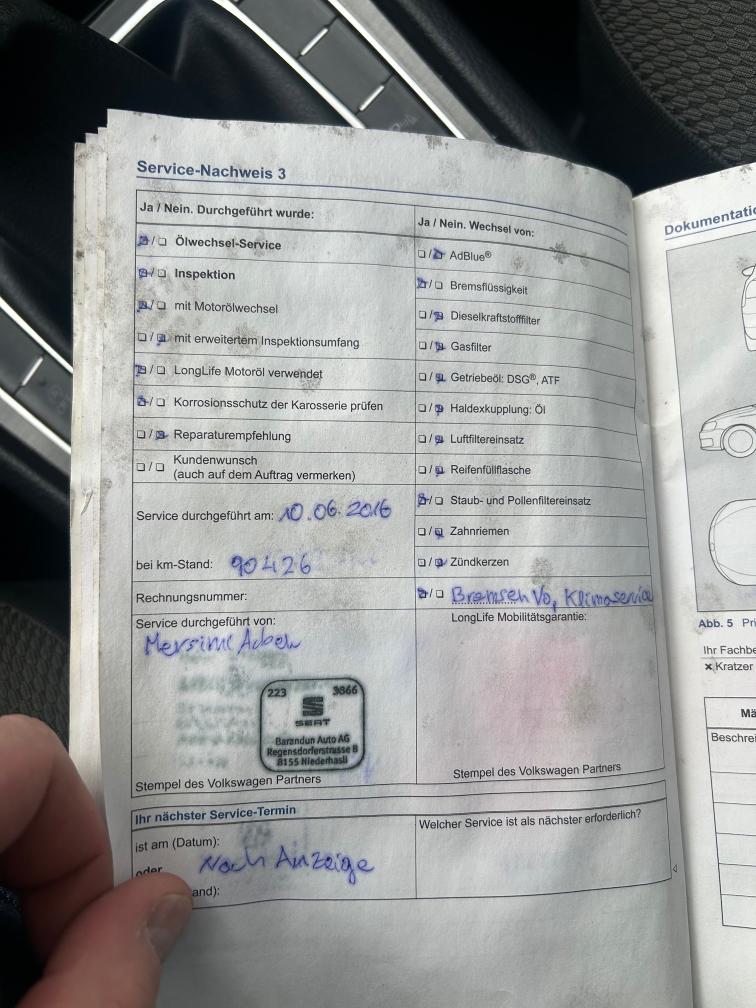 Service-Nachweis 3
Ja / Nein. Durchgeführt wurde:
Ölwechsel-Service
Inspektion
mit Motorölwechsel
mit erweitertem Inspektionsumfang
LongLife Motoröl verwendet
Korrosionsschutz der Karosserie prüfen
Reparaturempfehlung
Kundenwunsch
(auch auf dem Auftrag vermerken)
Service durchgeführt am: 10.06.2016
bei km-Stand: 90426
Rechnungsnummer:
Service durchgeführt von:
223 3866
SEAT
Barandun Auto AG
Regensdorferstrasse 8
8155 Niederhasli
Stempel des Volkswagen Partners
Ja / Nein. Wechsel von:
AdBlue®
Bremsflüssigkeit
Dieselkraftstofffilter
Gasfilter
Getriebeöl: DSG®, ATF
Haldexkupplung: Öl
Luftfiltereinsatz
Reifenfüllflasche
Staub- und Pollenfiltereinsatz
Zahnriemen
Zündkerzen
Bremsen Vo, Klimaservice
LongLife Mobilitätsgarantie:
Stempel des Volkswagen Partners
Ihr nächster Service-Termin
ist am (Datum):
oder
Nach Anzeige
and):
Welcher Service ist als nächster erforderlich?
Dokumentatio
Abb. 5 Pri
Ihr Fachbe
× Kratzer
Mä
Beschrei